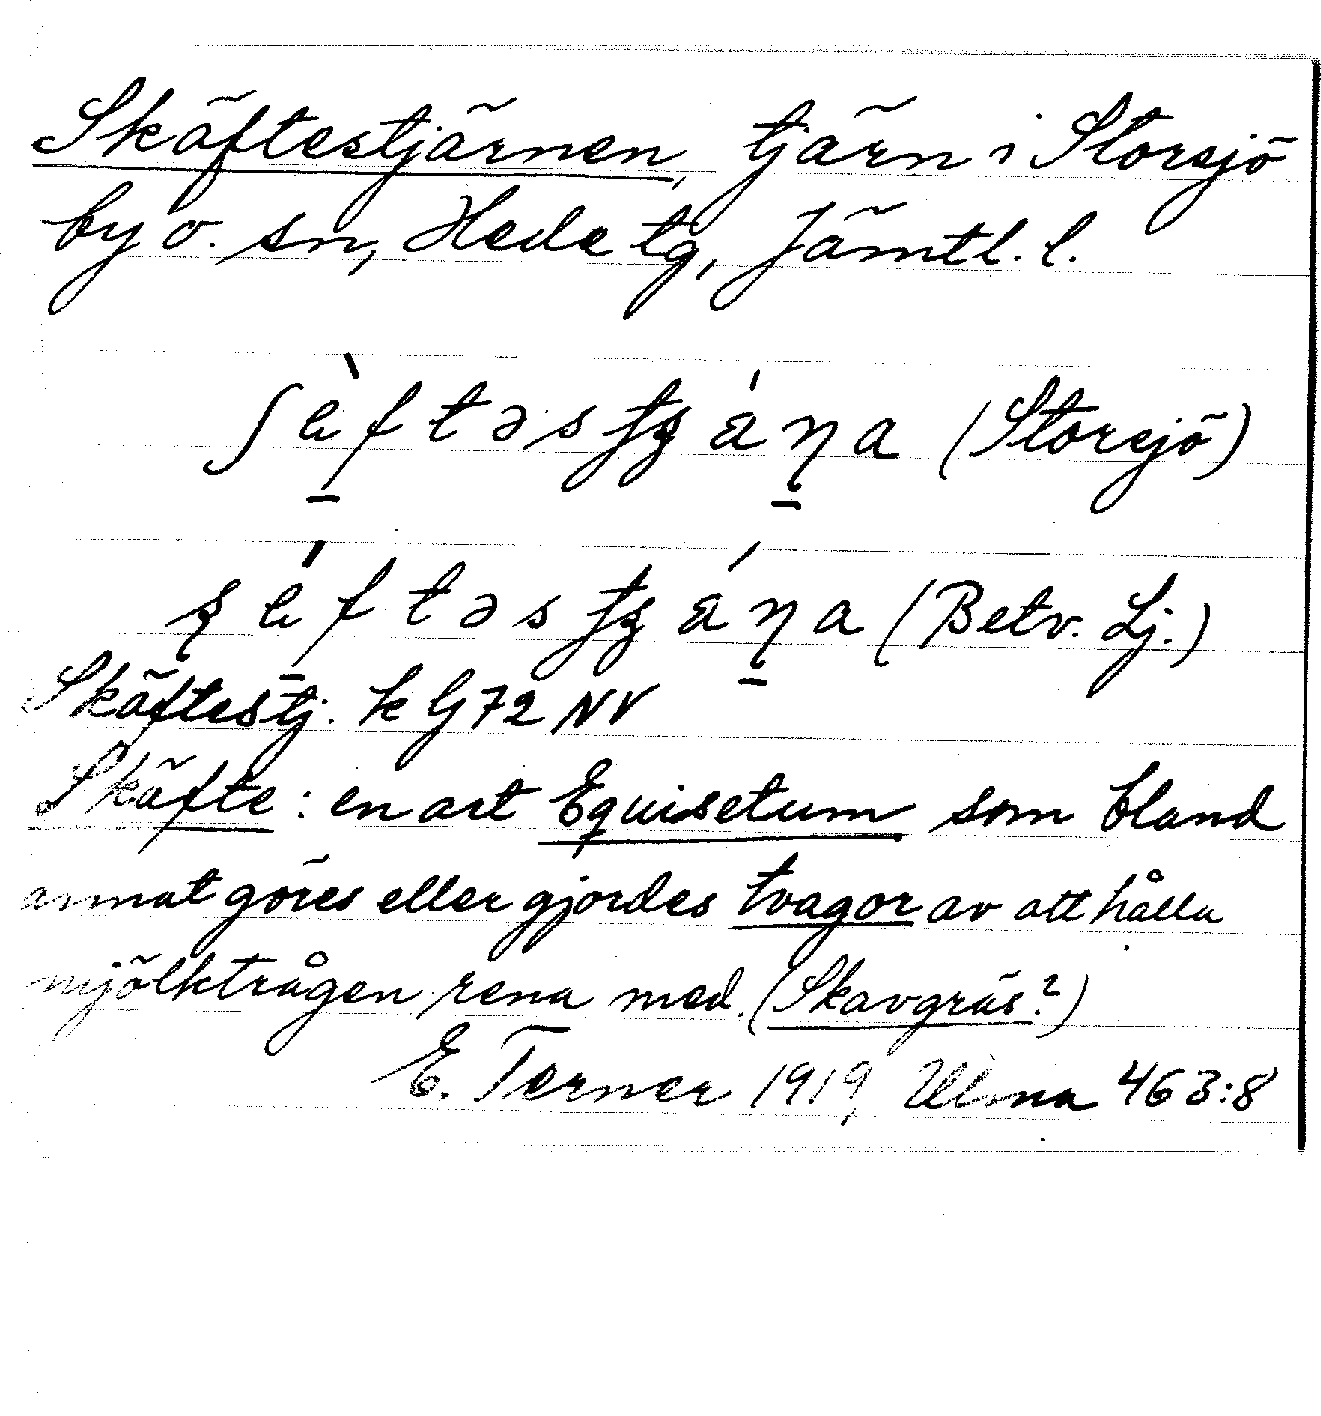 Skäftestjärnen, tjärn i Storsjö
by o. sn, Hede tg, Jämtl. l.
(Storsjö)
(Betv. Lj.)
Skäftestj. k G72 NV
Skäfte: en art Equisetum som bland
annat göres eller gjordes tvagor av att hålla
mjölktrågen rena med. (Skavgräs?)
E. Terner 1919, Ulma 463:8